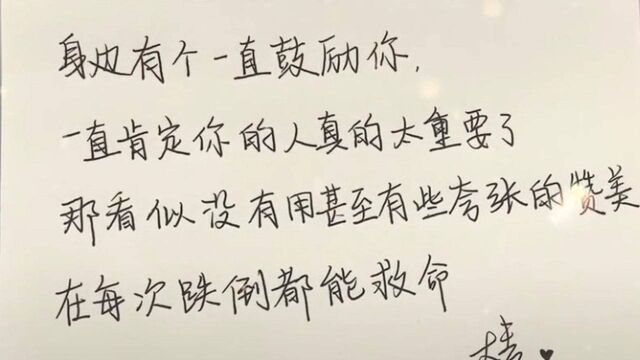 身边有个一直鼓励你,
一直肯定你的人真的太重要了
那看似没有用甚至有些夸张的赞美
在每次跌倒都能救命